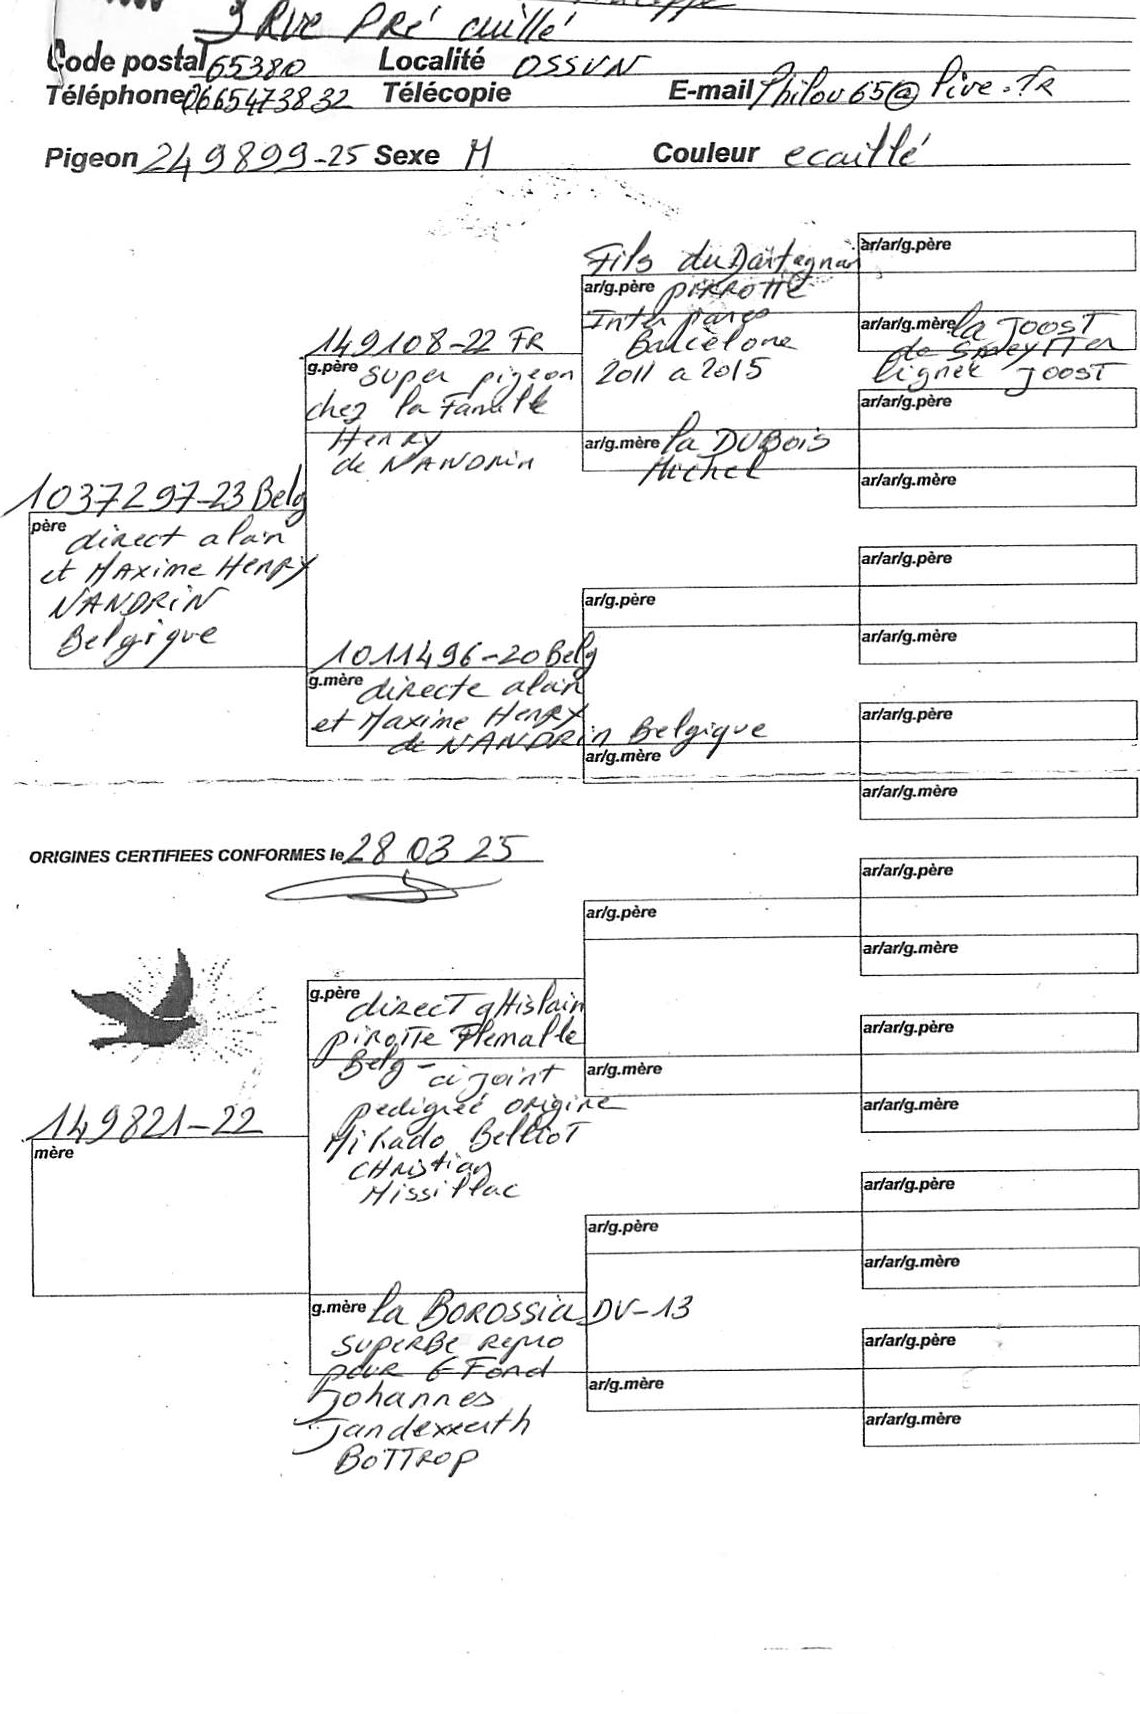 9 Rue PRé cuillé
Code postal 65380 Localité OSSUN
Téléphone 0665473832 Télécopie E-mail Philou65@live.FR
Pigeon 249899-25 Sexe M Couleur ecaillé
ar/ar/g.père
Fils du Dartagnan
ar/g.père PIRROTTE
Inter
Barcelone
2011 a 2015
ar/ar/g.mère la JOOST
de SMEYTTER
lignée JOOST
149108-22 FR
g.père super pigeon
chez la Famille
Henry
de NANDRin
ar/ar/g.père
ar/g.mère la DUBois
Michel
ar/ar/g.mère
1037297-23 Belg
père
direct alain
et MAXime HenRy
NANDRiN
Belgique
ar/ar/g.père
ar/g.père
ar/ar/g.mère
1011496-20 Belg
g.mère directe alain
et Maxime HenRy
de NANDRin Belgique
ar/ar/g.père
ar/g.mère
ar/ar/g.mère
ORIGINES CERTIFIEES CONFORMES le 28 03 25
ar/ar/g.père
ar/g.père
ar/ar/g.mère
g.père direcT gHislain
piroTTe Flemalle
Belg - ci joint
pedigreé origine
Mikado BellioT
CHRistian
Missillac
ar/ar/g.père
ar/g.mère
ar/ar/g.mère
149821-22
mère
ar/ar/g.père
ar/g.père
ar/ar/g.mère
g.mère la BOROSSia DV-13
SUPERBE REPRO
pour G Fond
Johannes
BOTTROP
ar/ar/g.père
ar/g.mère
ar/ar/g.mère